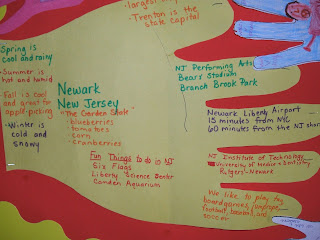 largest
- Trenton is the
state capital
Spring is
cool and rainy
- Summer is
hot and humid
- Fall is cool
and great for
apple-picking
- Winter is
cold and
snowy
Newark
New Jersey
"The Garden State"
- blueberries
- tomatoes
- corn
- cranberries
Fun Things to do in NJ
Six Flags
Liberty Science Center
Camden Aquarium
NJ Performing Arts
Bears Stadium
Branch Brook Park
Newark Liberty Airport
15 minutes from NYC
60 minutes from the NJ shore
NJ Institute of Technology
University of Medicine & Dentistry
Rutgers-Newark
We like to play tag
boardgames, jumprope
football, baseball, and
soccer